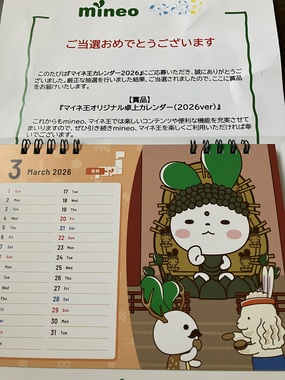 mineo
ご当選おめでとうございます
このたびは『マイネ王カレンダー2026』にご応募いただき、誠にありがとうご
ざいました。厳正な抽選を行いました結果、ご当選されましたので、ここに賞品
をお届けいたします。
【賞品】
『マイネ王オリジナル卓上カレンダー(2026ver)』
これからもmineo、マイネ王では楽しいコンテンツや便利な機能を充実させて
まいりますので、ぜひ引き続きmineo、マイネ王を楽しくご利用いただければ幸
いでございます。
3 March 2026
1 Sun 17 Tue
2 Mon 18 Wed
3 Tue 19 Thu
4 Wed 20 Fri
5 Thu 21 Sat
6 Fri 22 Sun
7 Sat 23 Mon
8 Sun 24 Tue
9 Mon 25 Wed
10 Tue 26 Thu
11 Wed 27 Fri
12 Thu 28 Sat
13 Fri 29 Sun
14 Sat 30 Mon
15 Sun 31 Tue
16 Mon